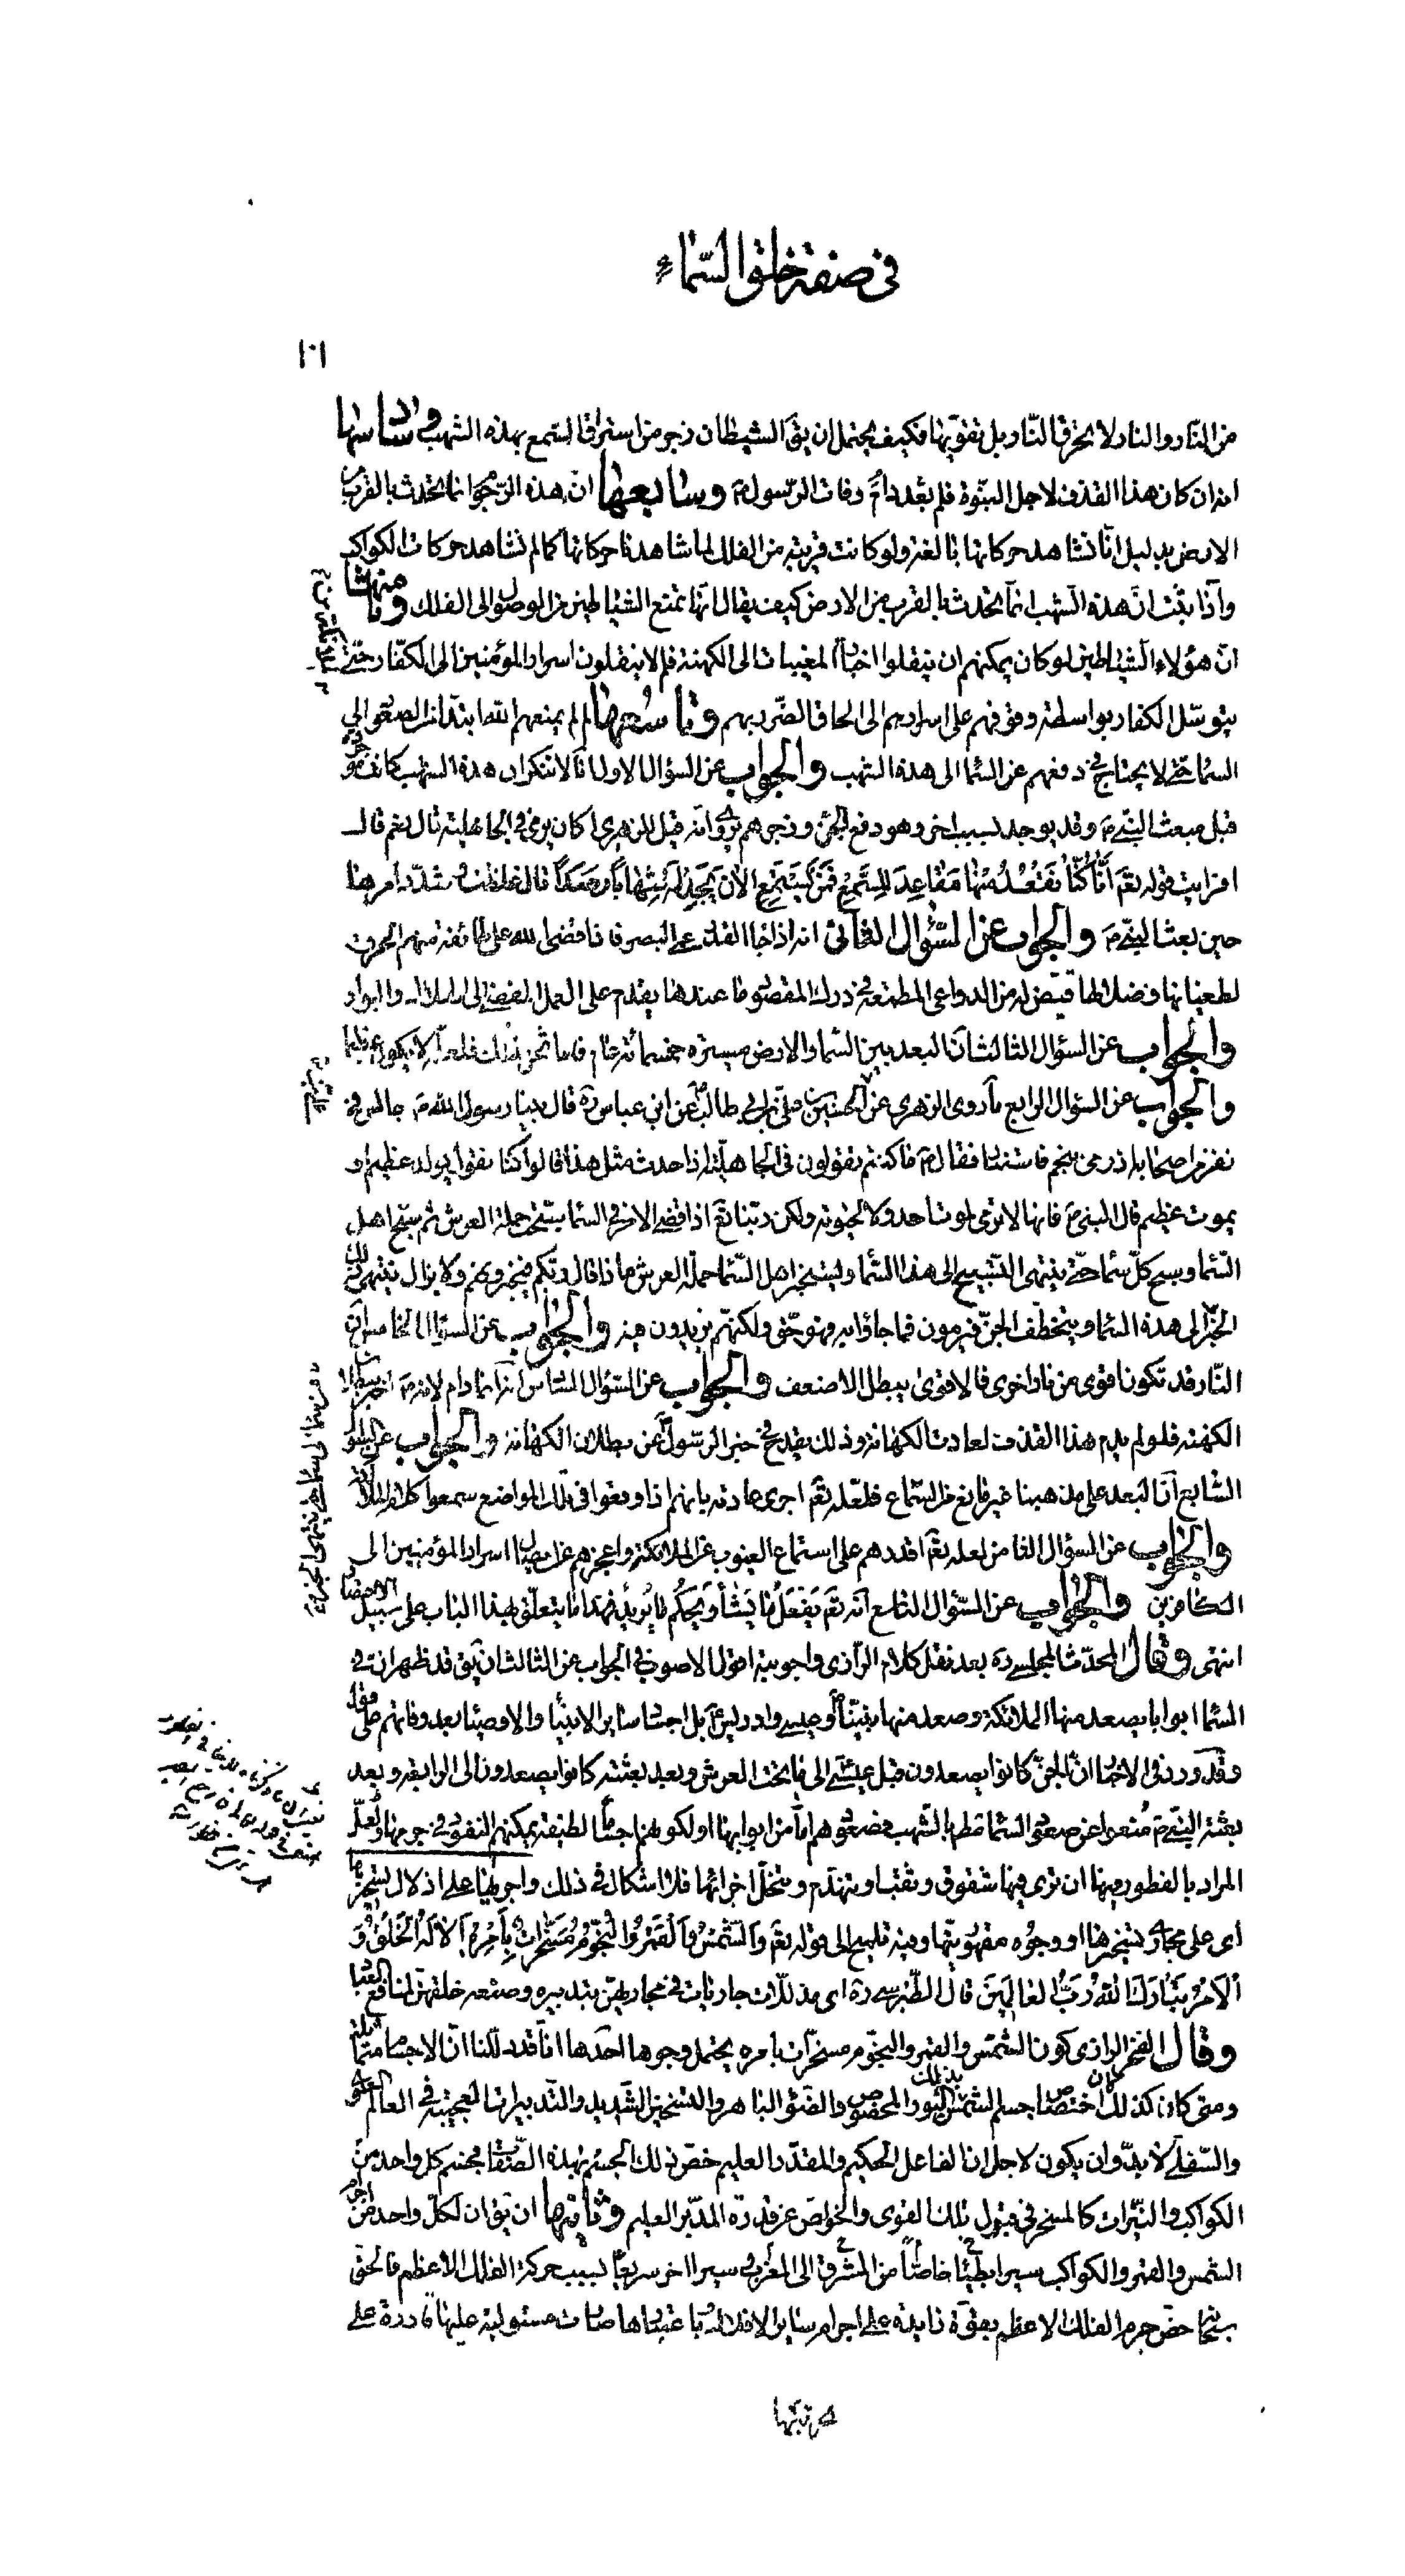 في صفة خلق السّماء
١٠١
من النّار والنار لا تحرق النّار بل تقوّيها فكيف يحتمل ان يق الشيطان زجر من استراق السّمع بهذه الشهب وسادسها
انه ان كان هذا القذف لاجل النبّوة فلم بقى بعد وفات الرّسول ص وسابعها انّ هذه الرّجوم انما تحدث بالقرب من
الارض بدليل انّا نشاهد حركاتها بالغة ولو كانت قريبة من الفلك لما شاهدنا حركاتها كما لم نشاهد حركات الكواكب
واذا ثبت انّ هذه الشهب انّما تحدث بالقرب من الارض كيف يقال انّها تمنع الشياطين من الوصول الى الفلك وثامنها
انّ هؤلاء الشياطين لو كان يمكنهم ان ينقلوا اخبار المغيبات الى الكهنة فلم لا ينقلون اسرار المؤمنين الى الكفّار حتّى
يتوسّل الكفار بواسطة وقوفهم على اسرارهم الى الحاق الضّرر بهم وتاسعها لم لم يمنعهم الله ابتداء من الصعود الى
السّما حتّى لا يحتاج في دفعهم عن السّما الى هذه الشهب والجواب عن السؤال الاول انّا لا ننكر ان هذه الشهب كانت موجودة
قبل مبعث النبيّ ص وقد يوجد لسبب اخر وهو دفع الجنّ وزجرهم يروى انّه قيل للزهري اكان يرمى في الجاهلية قال نعم قال
افرايت قوله تعم أَنَّا كُنَّا نَقْعُدُ مِنْهَا مَقَاعِدَ لِلسَّمْعِ فَمَنْ يَسْتَمِعِ الْآنَ يَجِدْ لَهُ شِهَاباً رَصَداً قال غلظت وشدّد امرها
حين بعث النبيّ ص والجواب عن السّؤال الثاني انه اذا جاء القدر عمى البصر فاذا قضى الله على طائفة منهم الحرق
لطغيانها وضلالها قيّض له من الدواعي المطمعة في درك المقصود ما عندها يقدم على العمل المفضى الى الهلاك والبوار
والجواب عن السؤال الثالث انّ البعد بين السّما والارض مسيرة خمسمائة عام فاما ثخن الفلك فلعلّه لا يكون عظيما
والجواب عن السؤال الرابع ما روى الزهري عن علىّ بن الحسين بن علىّ بن ابي طالب ع عن ابن عباس ره قال بينا رسول الله ص جالس في
نفر من اصحابه اذ رمى بنجم فاستنار فقال ص ما كنتم تقولون في الجاهليّة اذا حدث مثل هذا قالوا كنّا نقول يولد عظيم او
يموت عظيم قال النبيّ ص فانها لا ترمى لموت احد ولا لحيوته ولكن ربّنا تع اذا قضى الامر في السّما سبّحت حملة العرش ثم سبّح اهل
السّما وسبح كلّ سّما حتّى ينتهى التّسبيح الى هذه السّما ويستخبر اهل السّما حملة العرش ما ذا قال ربّكم فيخبرونهم ولا يزال ينتهى ذلك
الخبر الى هذه السّما ويتخطّف الجنّ فيرمون فما جاؤا به فهو حقّ ولكنّهم يزيدون فيه والجواب عن السؤال الخامس انّ
النّار قد تكون اقوى من نار اخرى فالاقوى يبطل الاضعف والجواب عن السّؤال السّادس انّه انما دام لانه ص اخبر ببطلان
الكهنة فلو لم يدم هذا القذف لعادت الكهانة وذلك يقدح في خبر الرّسول ص عن بطلان الكهانة والجواب عن السؤال
السّابع انّ البعد على مذهبنا غير مانع من السّماع فلعلّه تعم اجرى عادته بانهم اذا وقفوا في تلك المواضع سمعوا كلام الملائكة
والجواب عن السؤال الثامن لعله تعم اقدرهم على استماع الغيوب عن الملائكة واعجزهم عن ايصال اسرار المؤمنين الى
الكافرين والجواب عن السّؤال التاسع انّه تعم يَفْعَلُ مَا يَشَاءُ وَيَحْكُمُ مَا يُرِيدُ فهذا ما يتعلّق بهذا الباب على سبيل الاختصار
انتهى وقال المحدّث المجلسى ره بعد نقل كلام الرّازى واجوبته اقول الاصوب في الجواب عن الثالث ان يق قد ظهر ان في
السّما ابوابا يصعد منها الملائكة وصعد منها نبيّنا ص وعيسى وادريس ع بل اجساد ساير الانبياء والاوصياء بعد وفاتهم على قول
وقد ورد في الاخبار انّ الجنّ كانوا يصعدون قبل عيسى الى ما تحت العرش وبعد بعثته كانوا يصعدون الى الرابعة وبعد
بعثة النبيّ ص مُنعوا عن صعود السّما مطلقا بالشهب فصعودهم امّا من ابوابها او لكونهم اجساما لطيفة يمكنهم النفوذ في جرمها ولعلّ
المراد بالفطور فيها ان ترى فيها شقوق وثقب او تنهدم وتنحلّ اجزائها فلا اشكال في ذلك واجريها على اذلال تسخيرها
اى على مجارى تسخيرها او وجوه مقهوريّتها وفيه تلميح الى قوله تعم وَالشَّمْسَ وَالْقَمَرَ وَالنُّجُومَ مُسَخَّرَاتٍ بِأَمْرِهِ أَلَا لَهُ الْخَلْقُ وَ
الْأَمْرُ تَبَارَكَ اللهُ رَبُّ الْعَالَمِينَ قال الطّبرسى ره اى مذلّلات جاريات في مجاريهنّ بتدبيره وصنعه خلقهنّ لمنافع العباد
وقال الفخر الرازى كون الشمس والقمر والنجوم مسخّرات بامره يحتمل وجوها احدها انّا قد دلّلنا انّ الاجسام متماثلة
ومتى كان كذلك كان اختصاص جسم الشمس بذلك النور المخصوص والضّوء الباهر والتسخين الشّديد والتّدبيرات العجيبة في العالم العلوى
والسّفلى لا بدّ وان يكون لاجل ان الفاعل الحكيم والمقدّر العليم خصّ ذلك الجسم بهذه الصّفات فجسم كل واحد من
الكواكب والنّيّرات كالمسخر في قبول تلك القوى والخواصّ عن قدرة المدبّر العليم وثانيها ان يق ان لكلّ واحد من اجرام
الشمس والقمر والكواكب سيرا بطيئا خاصّا من المشرق الى المغرب وسيرا اخر سريعا بسبب حركة الفلك الاعظم فالحقّ
سبحانه خصّ جرم الفلك الاعظم بقوّة زايدة على اجرام ساير الافلاك باعتبارها صارت مستولية عليها قادرة على